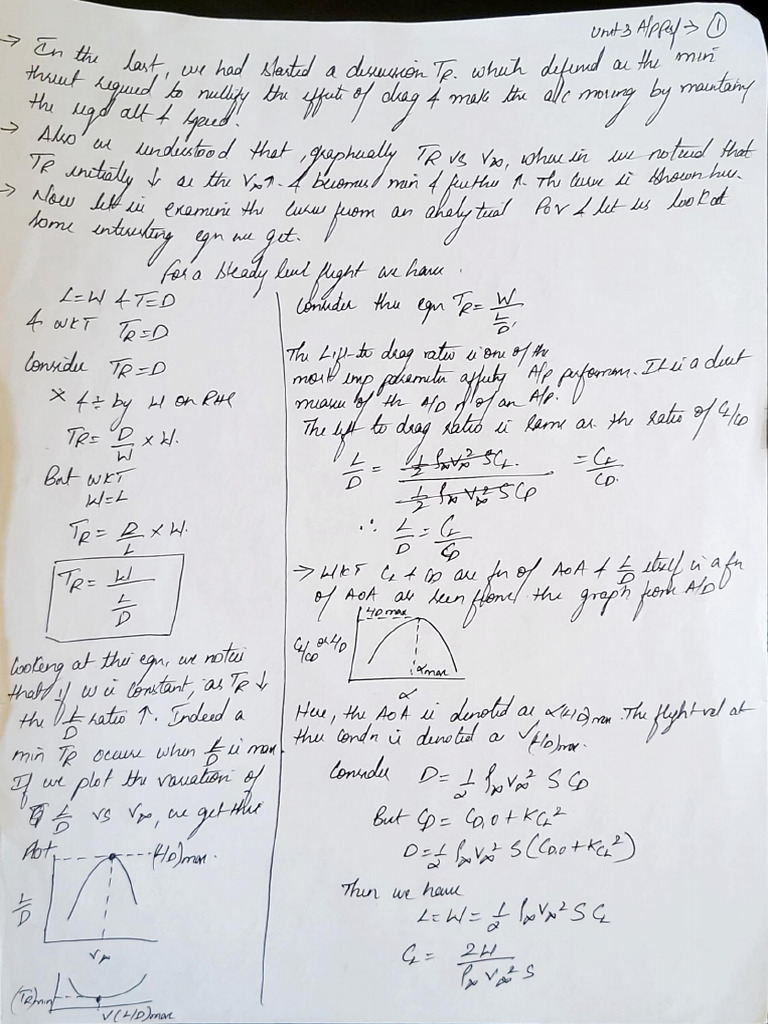 Unit 3 A/p Perf → ①
→ In the last, we had started a discussion TR. which defined as the min
thrust required to nullify the effects of drag & make the a/c moving by maintaing
the reqd alt & speed.
→ Also we understood that, graphically TR vs V∞, where in we noticed that
TR initially ↓ as the V∞↑. & becomes min & further ↑. The curve is shown here.
→ Now let us examine the curve from an analytical PoV & let us look at
some interesting eqn we get.
For a steady level flight we have.
L=W & T=D
& WKT TR=D
Consider TR=D
× & ÷ by W on RHS
TR = D/W × W.
But WKT
W=L
TR = D/L × W.
TR = W / (L/D)
Looking at this eqn, we notice
that if W is constant, as TR ↓
the L/D ratio ↑. Indeed a
min TR occurs when L/D is max.
If we plot the variation of
L/D vs V∞, we get this
Plot
(L/D)max.
L/D
V∞
(TR)min
V(L/D)max
Consider this eqn TR = W / (L/D)
The Lift to drag ratio is one of the
most imp parameter affecting A/p performance. It is a direct
measure of the A/D η of an A/p.
The lift to drag ratio is same as the ratio of CL/CD
L/D = ½ ρ∞V∞² SCL / ½ ρ∞V∞² SCD = CL/CD.
∴ L/D = CL/CD
→ WKT CL & CD are fn of AoA & L/D itself is a fn
of AoA as seen from the graph from A/D
L/D max
CL/CD or L/D
αmax
α
Here, the AoA is denoted as α(L/D)max. The flight vel at
this condn is denoted as V(L/D)max.
Consider D = ½ ρ∞V∞² S CD
But CD = CD,0 + KCL²
D = ½ ρ∞V∞² S(CD,0 + KCL²)
Then we have
L = W = ½ ρ∞V∞² S CL
CL = 2W / ρ∞ V∞² S